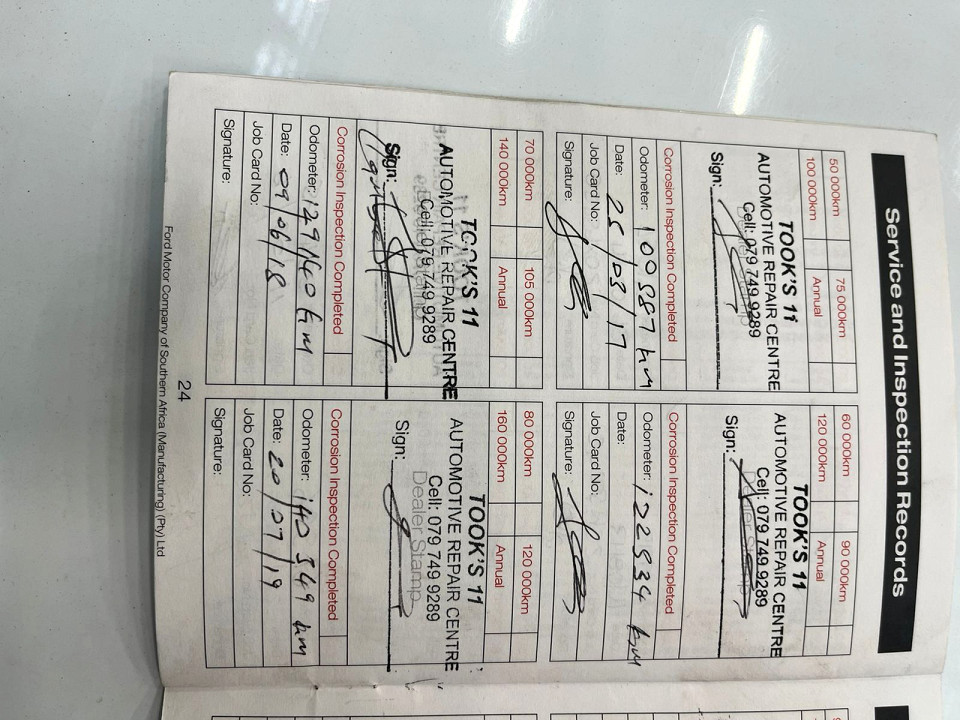 Service and Inspection Records
50 000km 75 000km
100 000km Annual
TOOK'S 11
AUTOMOTIVE REPAIR CENTRE
Cell: 079 749 9289
Sign:
Corrosion Inspection Completed
Odometer: 100587 km
Date: 25/03/17
Job Card No:
Signature:
60 000km 90 000km
120 000km Annual
TOOK'S 11
AUTOMOTIVE REPAIR CENTRE
Cell: 079 749 9289
Dealer Stamp
Sign:
Corrosion Inspection Completed
Odometer: 122534 km
Date:
Job Card No:
Signature:
70 000km 105 000km
140 000km Annual
TOOK'S 11
AUTOMOTIVE REPAIR CENTRE
Cell: 079 749 9289
Sign:
Corrosion Inspection Completed
Odometer: 129140 km
Date: 09/06/18
Job Card No:
Signature:
80 000km 120 000km
160 000km Annual
TOOK'S 11
AUTOMOTIVE REPAIR CENTRE
Cell: 079 749 9289
Dealer Stamp
Sign:
Corrosion Inspection Completed
Odometer: 140 349 km
Date: 20/07/19
Job Card No:
Signature:
24
Ford Motor Company of Southern Africa (Manufacturing) (Pty) Ltd